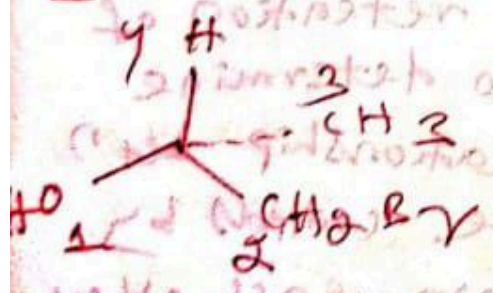 4 H
3
CH3
HO
1
CH2Br
2